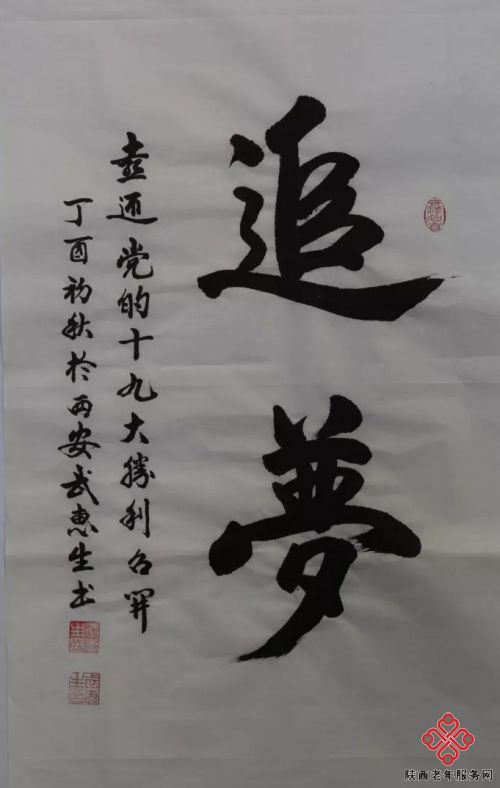 追夢
喜迎党的十九大勝利召開
丁酉初秋於西安武惠生书
陕西老年服务网